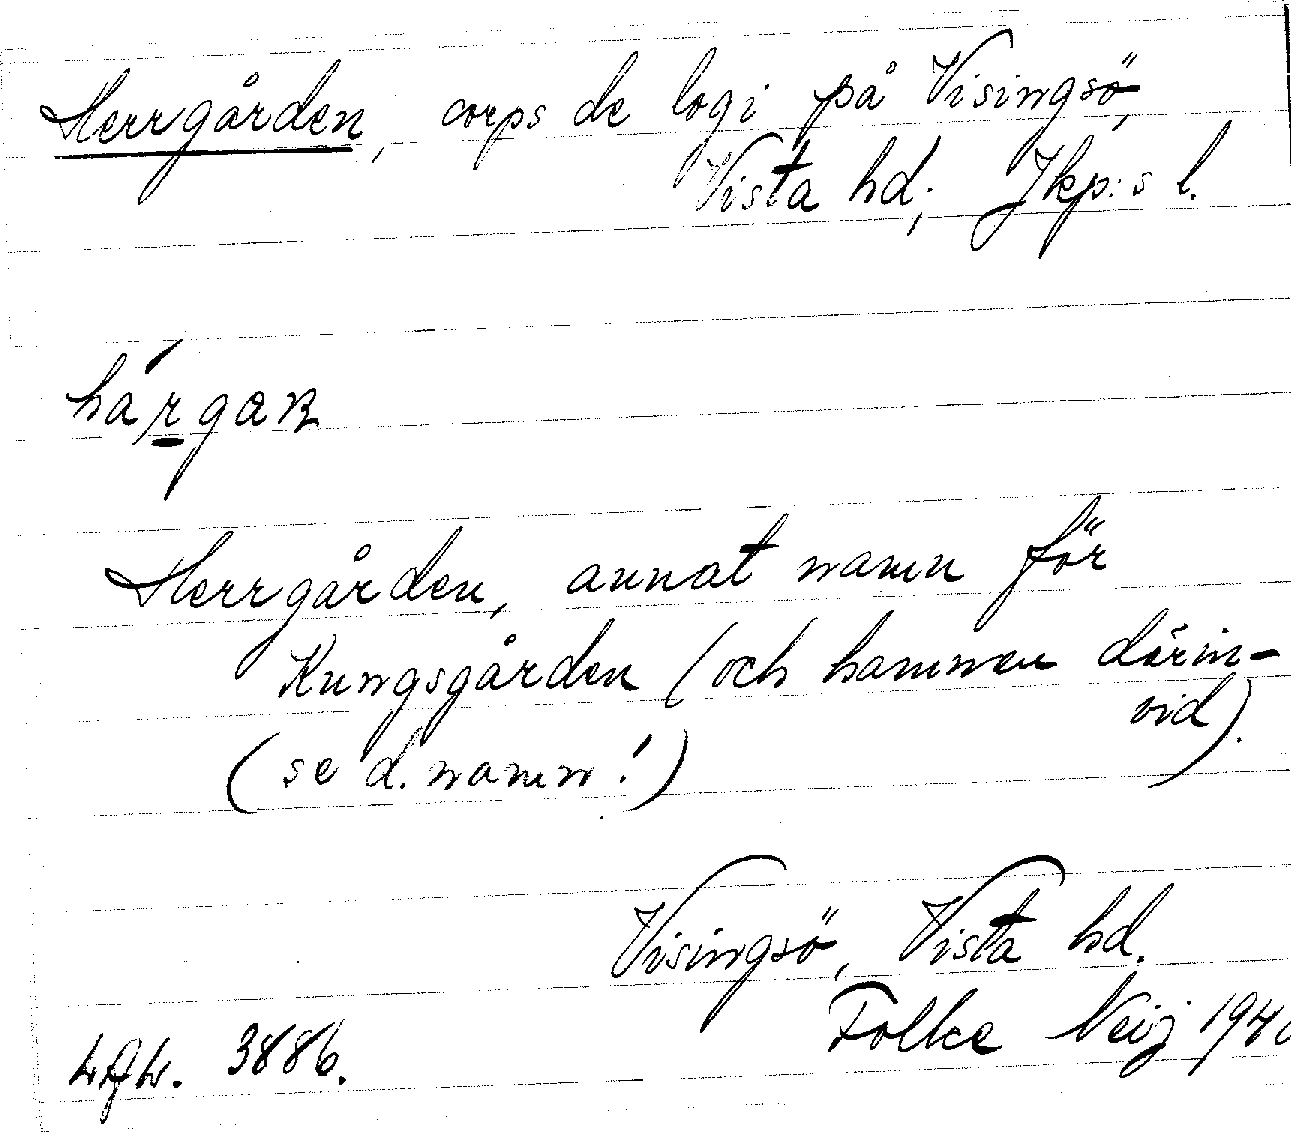 Herrgården, corps de logi på Visingsö,
Vista hd; Jkp:s l.
Herrgården, annat namn för
Kungsgården (och hamnen därin-
vid).
(se d. namn!)
Visingsö, Vista hd.
Folke Neij 194
3886.